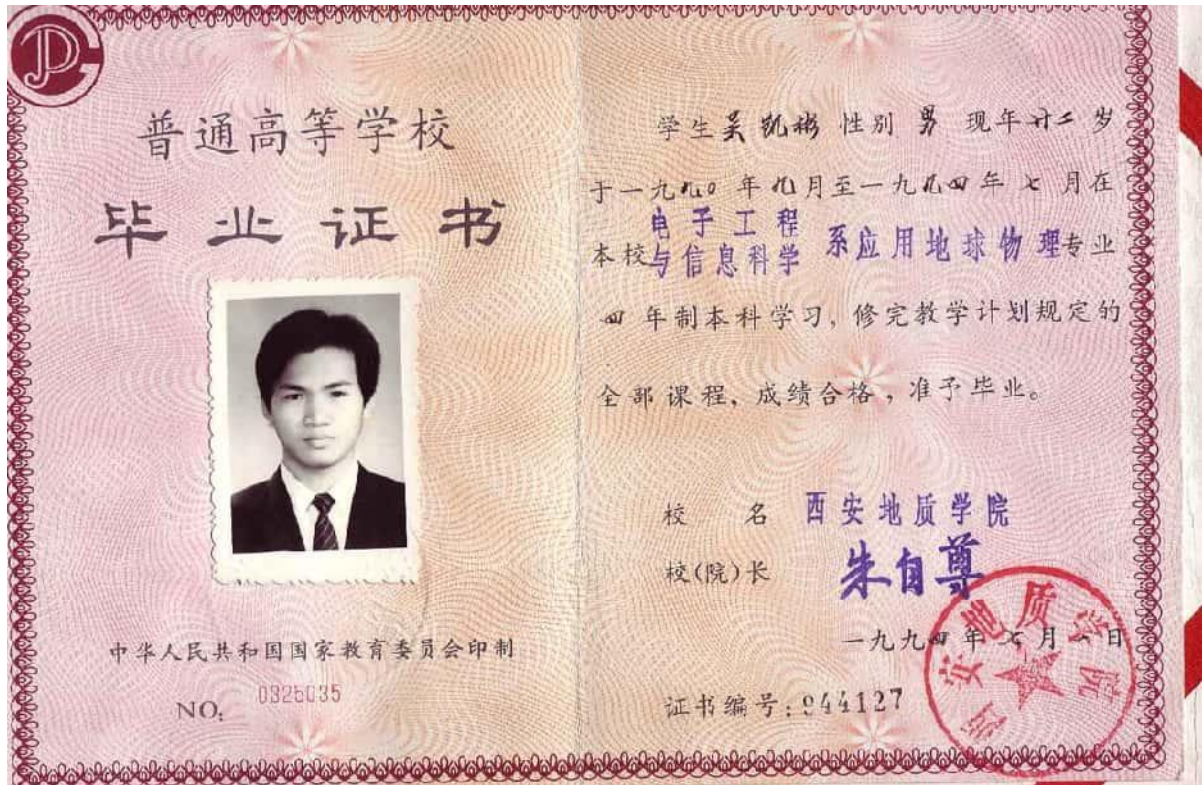 普通高等学校
毕业证书
中华人民共和国国家教育委员会印制
NO:
0325035
学生吴凯彬 性别 男 现年廿二岁
于一九九0年九月至一九九四年七月在
本校电子工程与信息科学系应用地球物理专业
四年制本科学习，修完教学计划规定的
全部课程、成绩合格，准予毕业。
校 名 西安地质学院
校(院)长 朱自尊
一九九四年七月一日
证书编号：944127
西安地质学院